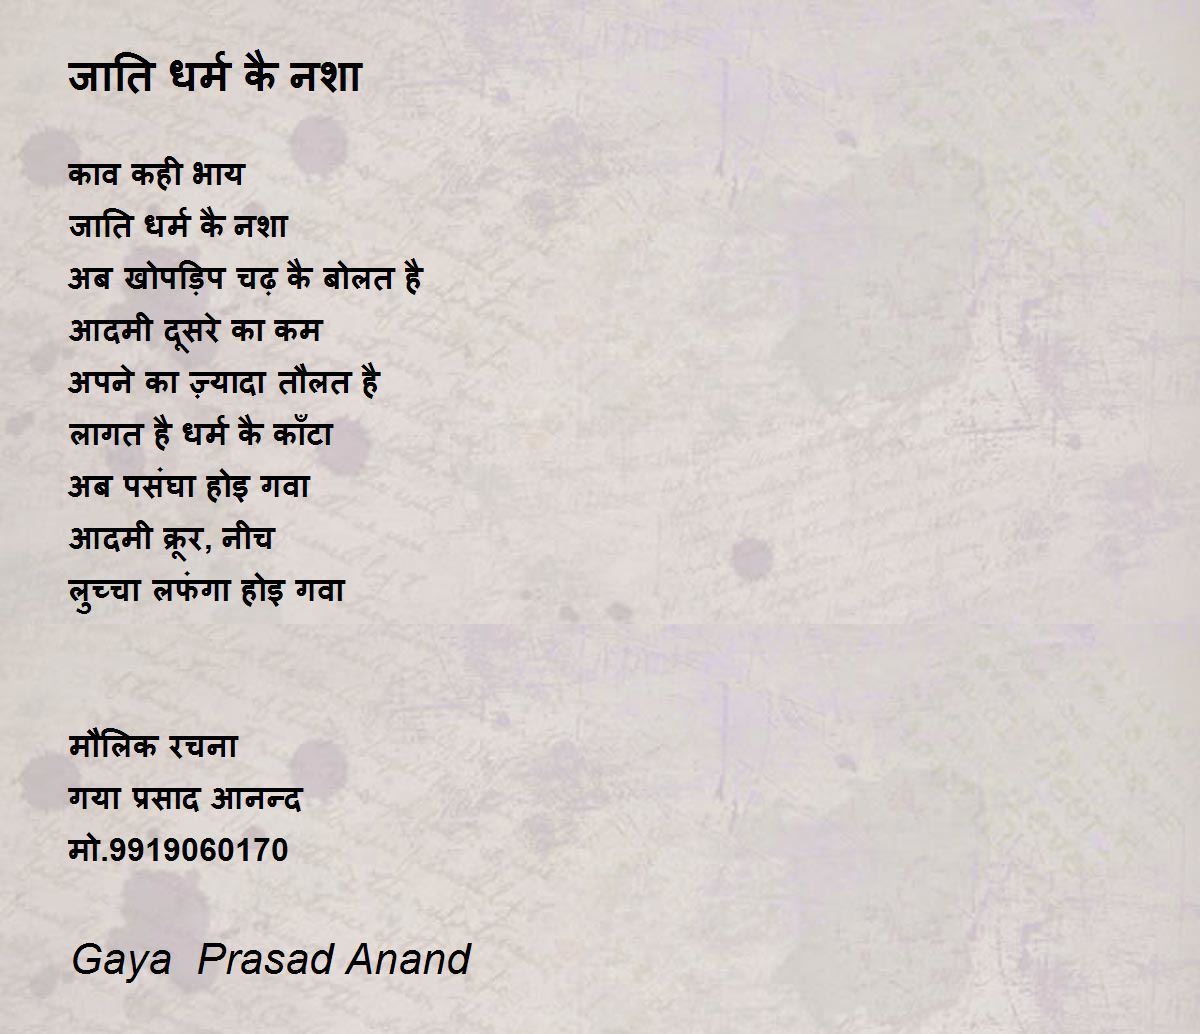 जाति धर्म कै नशा
काव कही भाय
जाति धर्म कै नशा
अब खोपड़िप चढ़ कै बोलत है
आदमी दूसरे का कम
अपने का ज़्यादा तौलत है
लागत है धर्म कै काँटा
अब पसंघा होइ गवा
आदमी क्रूर, नीच
लुच्चा लफंगा होइ गवा
मौलिक रचना
गया प्रसाद आनन्द
मो.9919060170
Gaya Prasad Anand